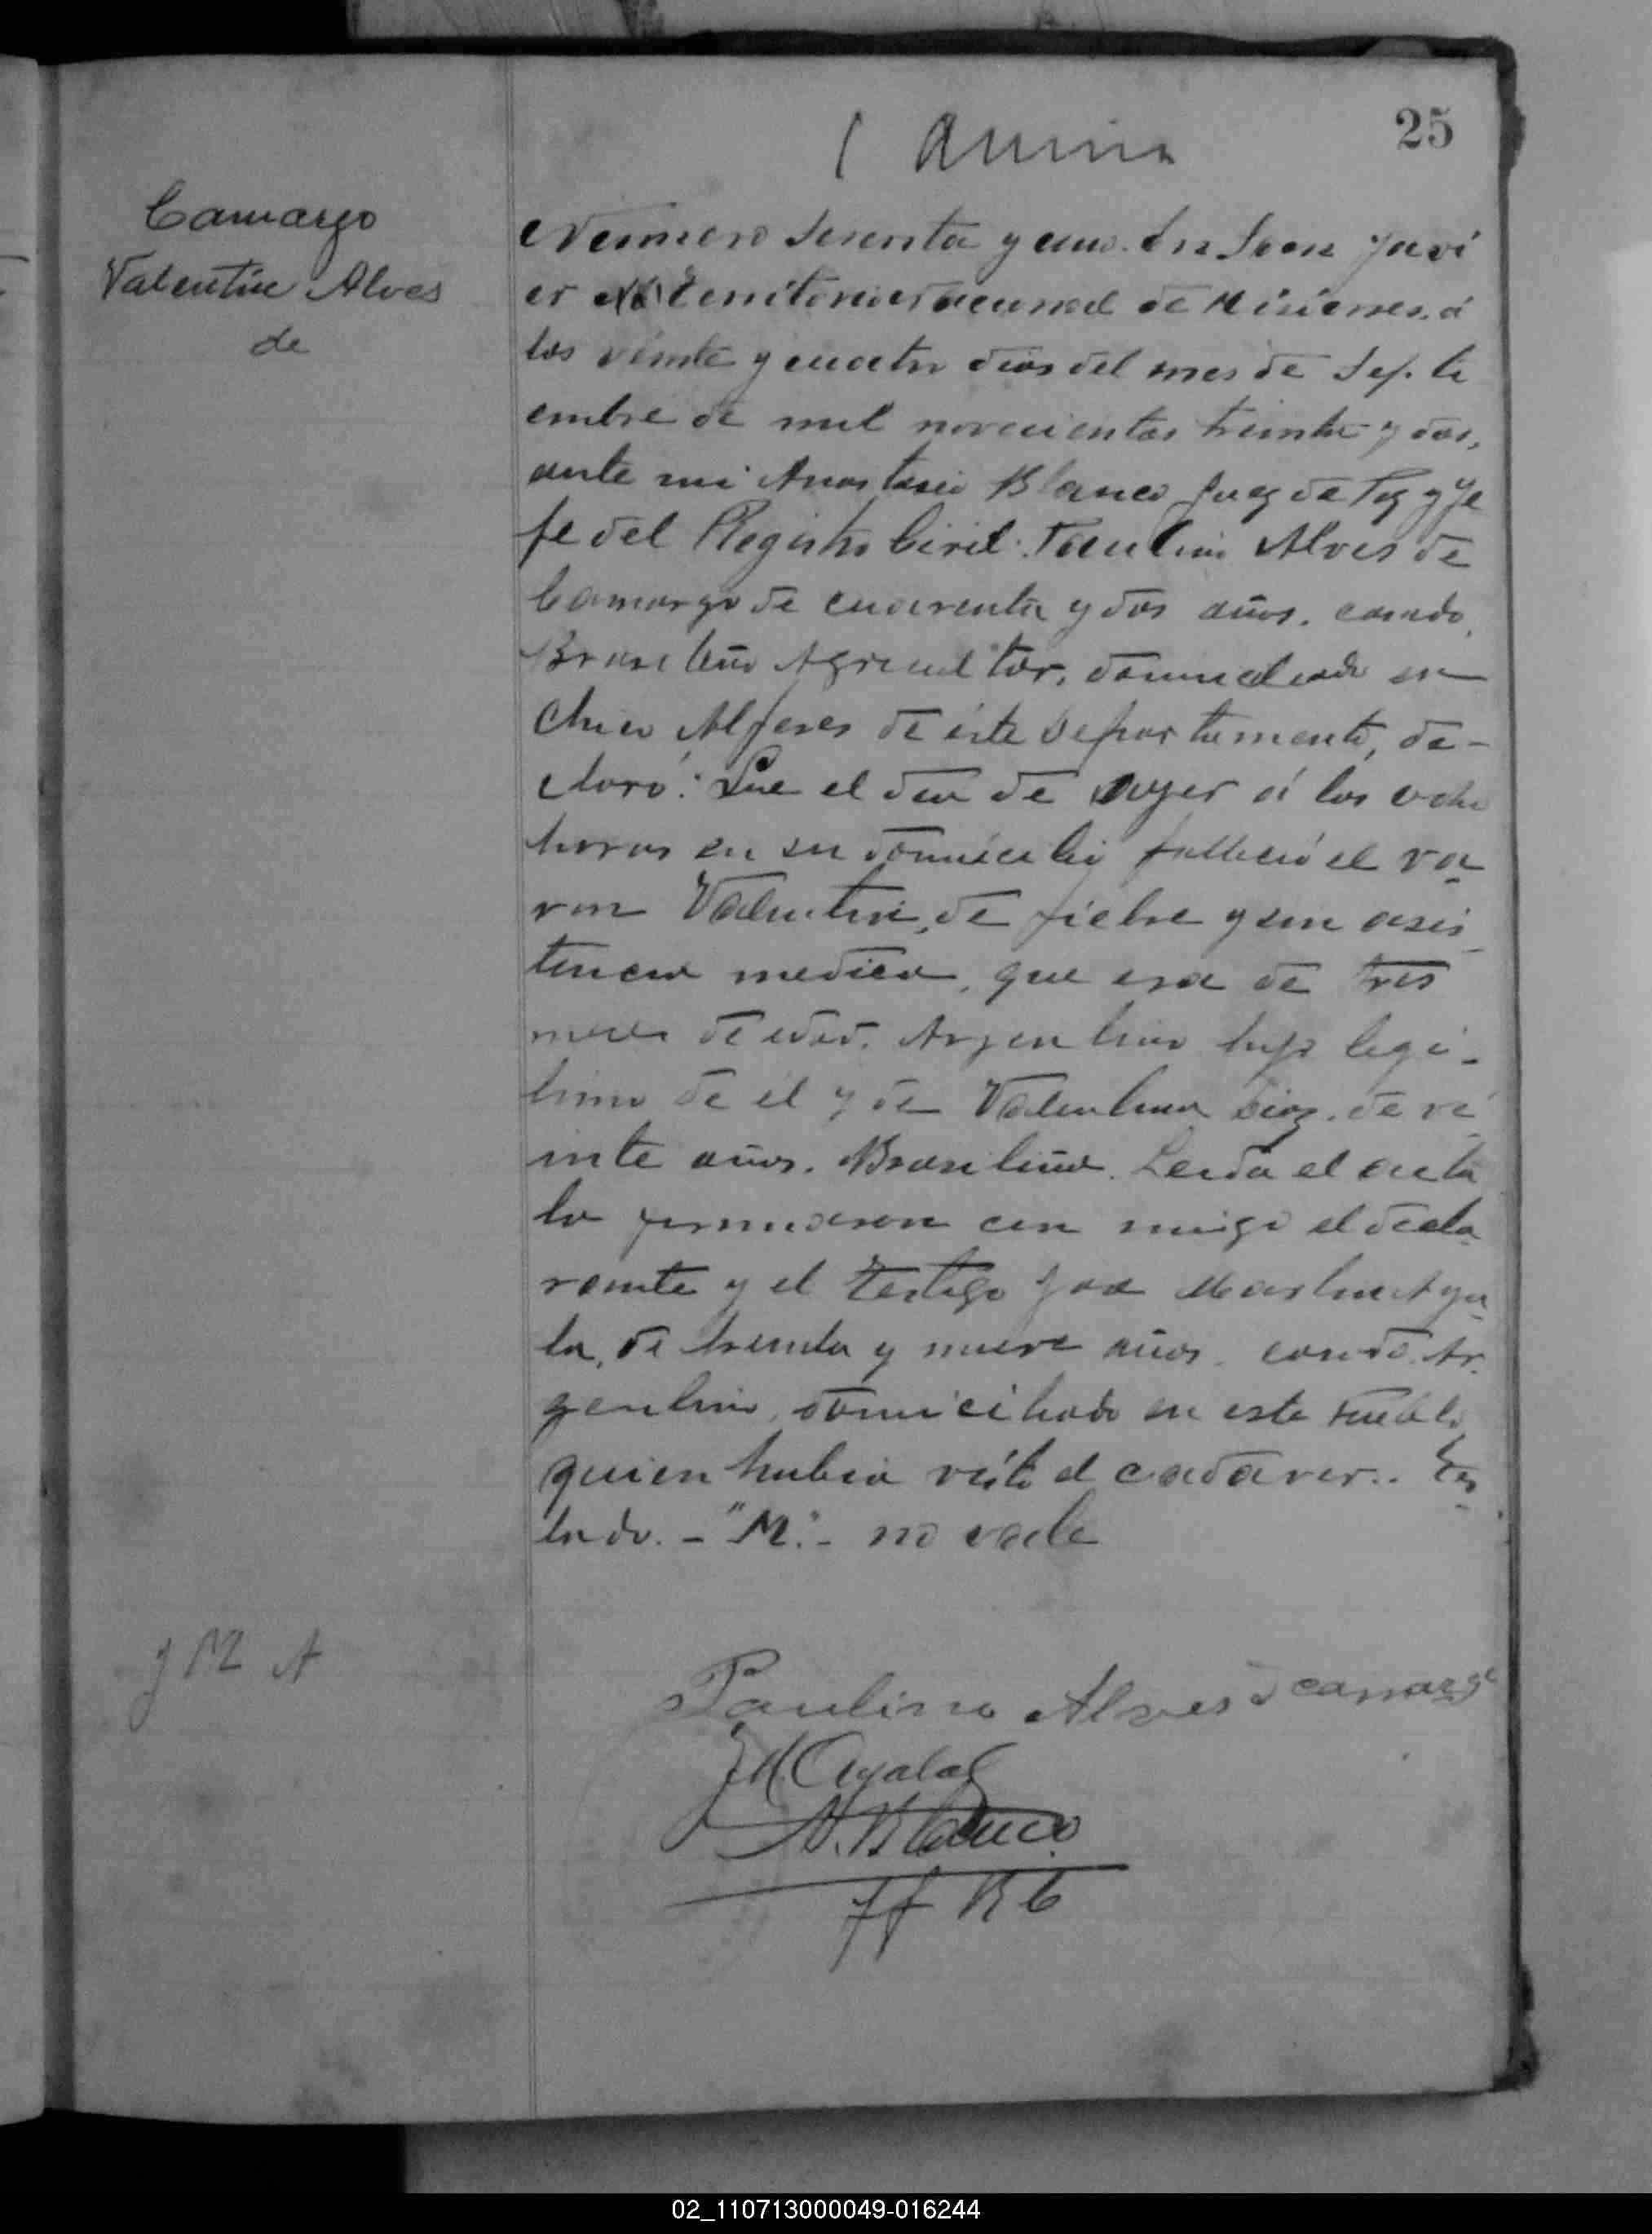 25
Camargo
Valentin Alves
de
Número sesenta y uno. En San Javi
er Territorio Nacional de Misiones. á
los veinte y cuatro dias del mes de Sep.ti
embre de mil novecientos treinta y dos,
ante mi Anastacio Blanco Juez de Paz y Je
fe del Registro Civil. Paulino Alves de
Camargo de cuarenta y dos años. casado,
Brasileño Agricultor, domiciliado en
Chico Alferes de éste Departamento, de-
claró: Que el dia de ayer á las ocho
horas en su domicilio falleció el va-
ron Valentin, de fiebre y sin asis-
tencia medica, que era de tres
meses de edad. Argentino hijo legi-
timo de él y de Valentina Diaz. de ve
inte años. Brasileña. Leida el acta
la firmaron con migo el decla-
rante y el testigo José Martin Aya-
la, de treinta y nueve años. casado. Ar-
gentino, domiciliado en este Pueblo,
quien habia visto el cadaver.. Tes-
tado. - "M." - no vale
J M A
Paulino Alves d camargo
J.M. Ayala
A. Blanco
J f R C
02_110713000049-016244